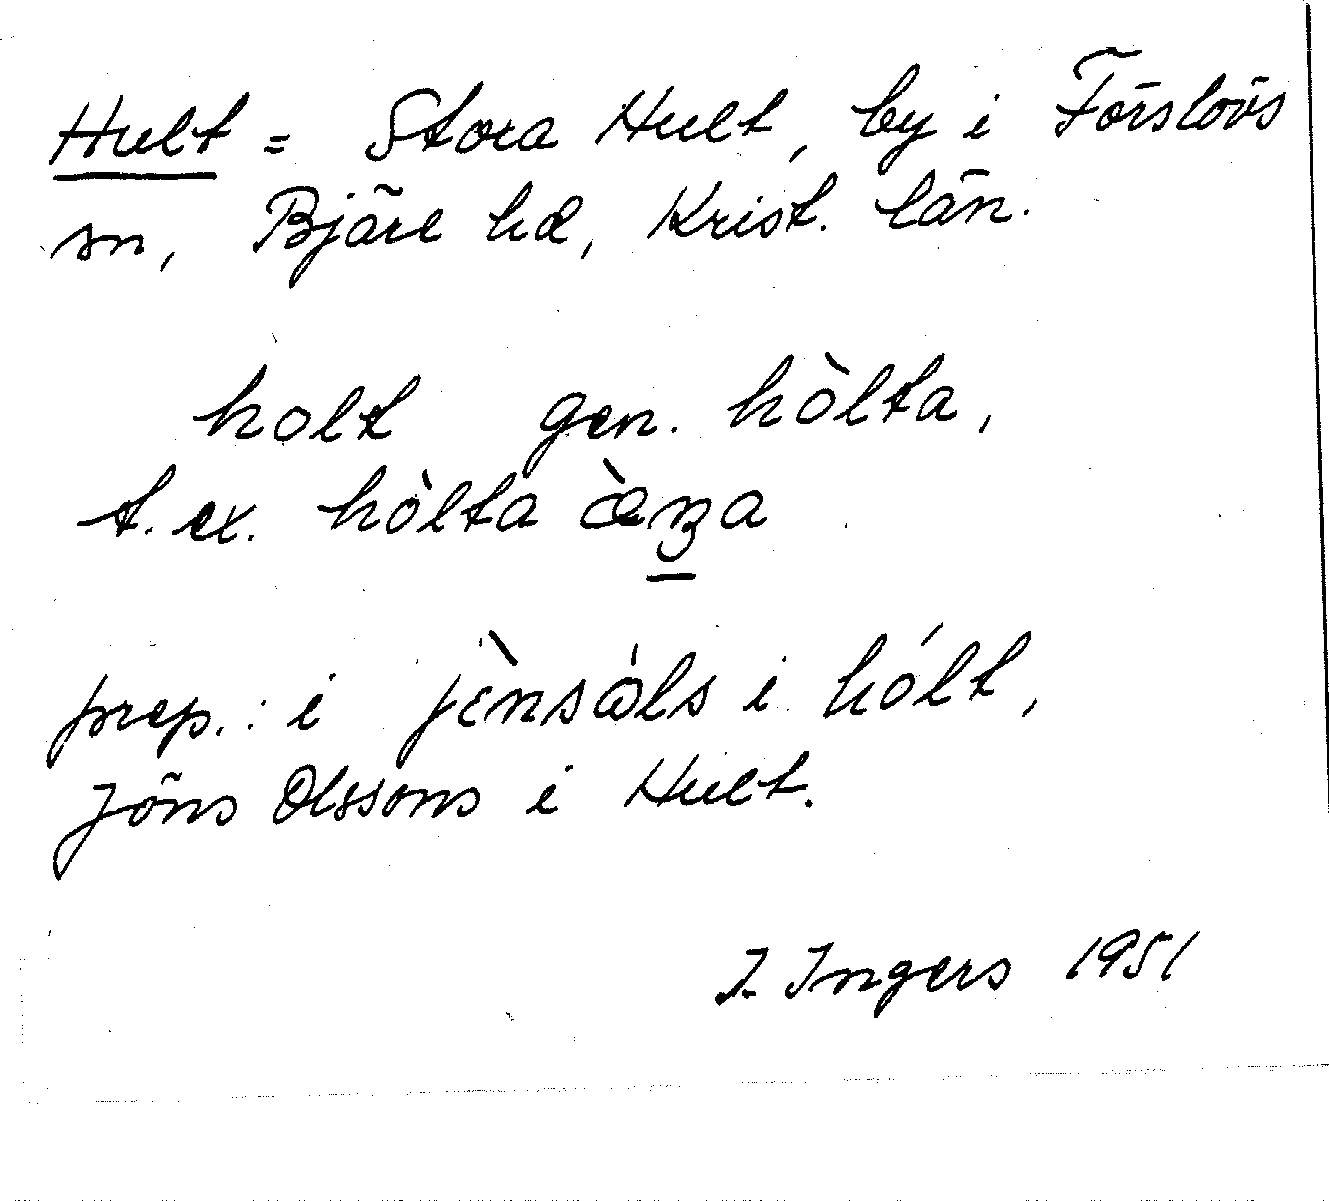 Hult = Stora Hult, by i Förslövs
sn, Bjäre hd, Krist. län.
holt gen. hòlta,
t. ex. hòlta æ̀nza
prep.: i jènsòls i hólt,
Jöns Olssons i Hult.
I. Ingers 1951